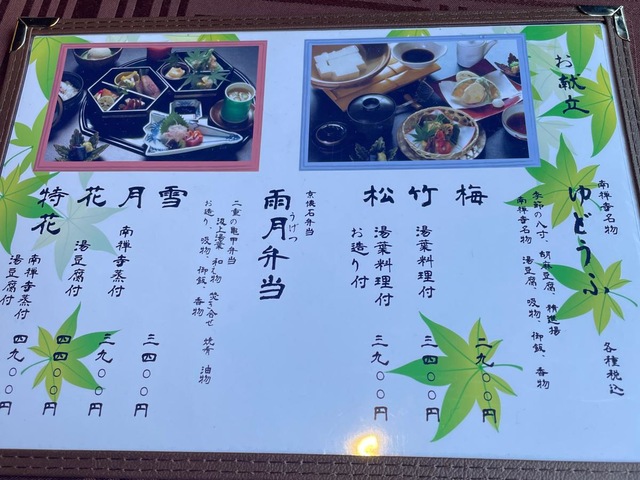 お献立
南禅寺名物
ゆどうふ
各種税込
季節の八寸、胡麻豆腐、精進揚
南禅寺名物 湯豆腐、吸物、御飯、香物
梅
二九〇〇円
竹
湯葉料理付
三四〇〇円
松
湯葉料理付
お造り付
三九〇〇円
玄懐石弁当
うげつ
雨月弁当
二重の亀甲弁当
汲上湯葉 和え物 焚き合せ 焼肴 油物
お造り、吸物、御飯、香物
雪
三四〇〇円
月
南禅寺蒸付
三九〇〇円
花
湯豆腐付
四四〇〇円
特花
南禅寺蒸付
湯豆腐付
四九〇〇円